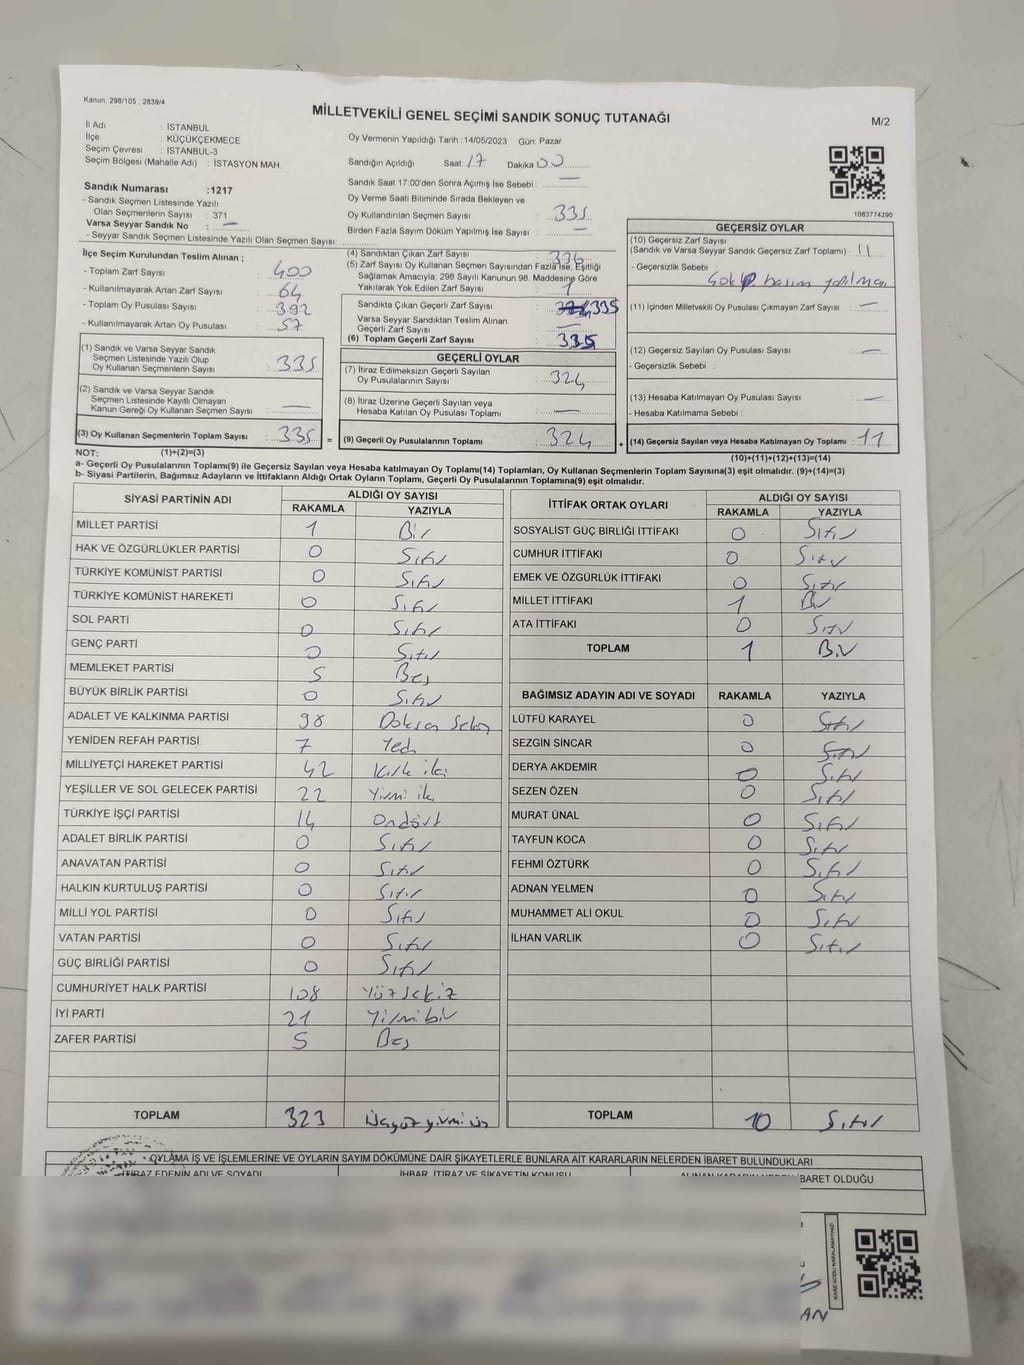 Kanun: 298/105 , 2839/4
MİLLETVEKİLİ GENEL SEÇİMİ SANDIK SONUÇ TUTANAĞI
M/2
İl Adı : İSTANBUL
İlçe : KÜÇÜKÇEKMECE
Seçim Çevresi : İSTANBUL-3
Seçim Bölgesi (Mahalle Adı) : İSTASYON MAH.
Oy Vermenin Yapıldığı Tarih : 14/05/2023 Gün: Pazar
Sandığın Açıldığı Saat: 17 Dakika 00
Sandık Saat 17:00'den Sonra Açımış İse Sebebi : —
Oy Verme Saati Bitiminde Sırada Bekleyen ve
Oy Kullandırılan Seçmen Sayısı : 335
Birden Fazla Sayım Döküm Yapılmış İse Sayısı : —
Sandık Numarası :1217
- Sandık Seçmen Listesinde Yazılı
Olan Seçmenlerin Sayısı : 371
Varsa Seyyar Sandık No : —
- Seyyar Sandık Seçmen Listesinde Yazılı Olan Seçmen Sayısı:
1083774290
İlçe Seçim Kurulundan Teslim Alınan ;
- Toplam Zarf Sayısı : 400
- Kullanılmayarak Artan Zarf Sayısı : 64
- Toplam Oy Pusulası Sayısı : 392
- Kullanılmayarak Artan Oy Pusulası : 57
(1) Sandık ve Varsa Seyyar Sandık
Seçmen Listesinde Yazılı Olup
Oy Kullanan Seçmenlerin Sayısı : 335
(2) Sandık ve Varsa Seyyar Sandık
Seçmen Listesinde Kayıtlı Olmayan
Kanun Gereği Oy Kullanan Seçmen Sayısı : —
(3) Oy Kullanan Seçmenlerin Toplam Sayısı : 335 =
(4) Sandıktan Çıkan Zarf Sayısı : 336
(5) Zarf Sayısı Oy Kullanan Seçmen Sayısından Fazla İse, Eşitliği
Sağlamak Amacıyla, 298 Sayılı Kanunun 98. Maddesine Göre
Yakılarak Yok Edilen Zarf Sayısı : 1
Sandıkta Çıkan Geçerli Zarf Sayısı : 335
Varsa Seyyar Sandıktan Teslim Alınan
Geçerli Zarf Sayısı : —
(6) Toplam Geçerli Zarf Sayısı : 335
GEÇERLİ OYLAR
(7) İtiraz Edilmeksizin Geçerli Sayılan
Oy Pusulalarının Sayısı : 324
(8) İtiraz Üzerine Geçerli Sayılan veya
Hesaba Katılan Oy Pusulası Toplamı : —
(9) Geçerli Oy Pusulalarının Toplamı : 324 +
GEÇERSİZ OYLAR
(10) Geçersiz Zarf Sayısı
(Sandık ve Varsa Seyyar Sandık Geçersiz Zarf Toplamı) : 11
- Geçersizlik Sebebi :
(11) İçinden Milletvekili Oy Pusulası Çıkmayan Zarf Sayısı : —
(12) Geçersiz Sayılan Oy Pusulası Sayısı : —
- Geçersizlik Sebebi :
(13) Hesaba Katılmayan Oy Pusulası Sayısı : —
- Hesaba Katılmama Sebebi :
(14) Geçersiz Sayılan veya Hesaba Katılmayan Oy Toplamı : 11
NOT: (1)+(2)=(3) (10)+(11)+(12)+(13)=(14)
a- Geçerli Oy Pusulalarının Toplamı(9) ile Geçersiz Sayılan veya Hesaba katılmayan Oy Toplamı(14) Toplamları, Oy Kullanan Seçmenlerin Toplam Sayısına(3) eşit olmalıdır. (9)+(14)=(3)
b- Siyasi Partilerin, Bağımsız Adayların ve İttifakların Aldığı Ortak Oyların Toplamı, Geçerli Oy Pusulalarının Toplamına(9) eşit olmalıdır.
SİYASİ PARTİNİN ADI ALDIĞI OY SAYISI
RAKAMLA YAZIYLA
MİLLET PARTİSİ 1 Bir
HAK VE ÖZGÜRLÜKLER PARTİSİ 0 Sıfır
TÜRKİYE KOMÜNİST PARTİSİ 0 Sıfır
TÜRKİYE KOMÜNİST HAREKETİ 0 Sıfır
SOL PARTİ 0 Sıfır
GENÇ PARTİ 0 Sıfır
MEMLEKET PARTİSİ 5 Beş
BÜYÜK BİRLİK PARTİSİ 0 Sıfır
ADALET VE KALKINMA PARTİSİ 98 Doksan Sekiz
YENİDEN REFAH PARTİSİ 7 Yedi
MİLLİYETÇİ HAREKET PARTİSİ 42 Kırk iki
YEŞİLLER VE SOL GELECEK PARTİSİ 22 Yirmi iki
TÜRKİYE İŞÇİ PARTİSİ 14 Ondört
ADALET BİRLİK PARTİSİ 0 Sıfır
ANAVATAN PARTİSİ 0 Sıfır
HALKIN KURTULUŞ PARTİSİ 0 Sıfır
MİLLİ YOL PARTİSİ 0 Sıfır
VATAN PARTİSİ 0 Sıfır
GÜÇ BİRLİĞİ PARTİSİ 0 Sıfır
CUMHURİYET HALK PARTİSİ 108 Yüzsekiz
İYİ PARTİ 21 Yirmibir
ZAFER PARTİSİ 5 Beş
TOPLAM 323 Üçyüz yirmi üç
İTTİFAK ORTAK OYLARI ALDIĞI OY SAYISI
RAKAMLA YAZIYLA
SOSYALIST GÜÇ BİRLİĞİ İTTİFAKI 0 Sıfır
CUMHUR İTTİFAKI 0 Sıfır
EMEK VE ÖZGÜRLÜK İTTİFAKI 0 Sıfır
MİLLET İTTİFAKI 1 Bir
ATA İTTİFAKI 0 Sıfır
TOPLAM 1 Bir
BAĞIMSIZ ADAYIN ADI VE SOYADI RAKAMLA YAZIYLA
LÜTFÜ KARAYEL 0 Sıfır
SEZGİN SİNCAR 0 Sıfır
DERYA AKDEMİR 0 Sıfır
SEZEN ÖZEN 0 Sıfır
MURAT ÜNAL 0 Sıfır
TAYFUN KOCA 0 Sıfır
FEHMİ ÖZTÜRK 0 Sıfır
ADNAN YELMEN 0 Sıfır
MUHAMMET ALİ OKUL 0 Sıfır
İLHAN VARLIK 0 Sıfır
TOPLAM 0 Sıfır
OYLAMA İŞ VE İŞLEMLERİNE VE OYLARIN SAYIM DÖKÜMÜNE DAİR ŞİKAYETLERLE BUNLARA AİT KARARLARIN NELERDEN İBARET BULUNDUKLARI
İTİRAZ EDENİN ADI VE SOYADI İHBAR, İTİRAZ VE ŞİKAYETİN KONUSU İBARET OLDUĞU